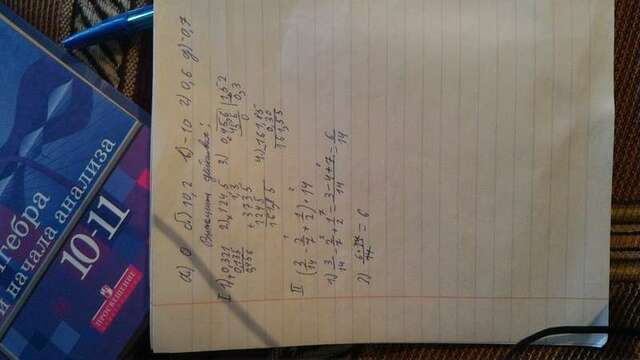 алгебра
и начала анализа
10-11
ПРОСВЕЩЕНИЕ
а) 0 б) 10,2 в) -10 г) 0,6 д) -0,7
Выполните действия:
I 1) + 0,321 2) × 124,5 3) 0,456 | 1,52
0,135 1,3 456 0,3
0,456 + 3735 0 4) - 161,85
1245 0,30
161,85 161,55
II
(3/14 - 2/7 + 1/2) · 14
1) 3/14 - 2/7 + 1/2 = 3-4+7/14 = 6/14
2) 6·14/14 = 6